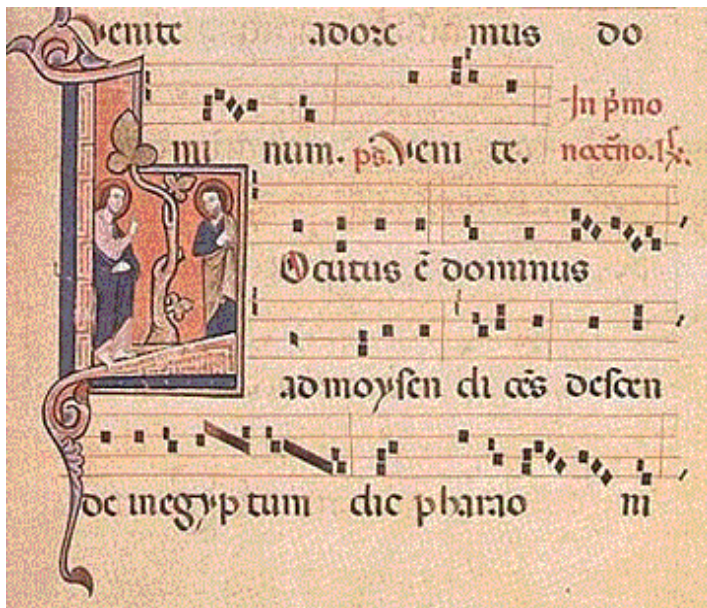 Venite adore mus do
mi num. ps. Veni te. In p̄mo
noct̄no. R̸.
Ocutus ē dominus
ad moysen di cēs descen
de in egyptum dic pharao ni